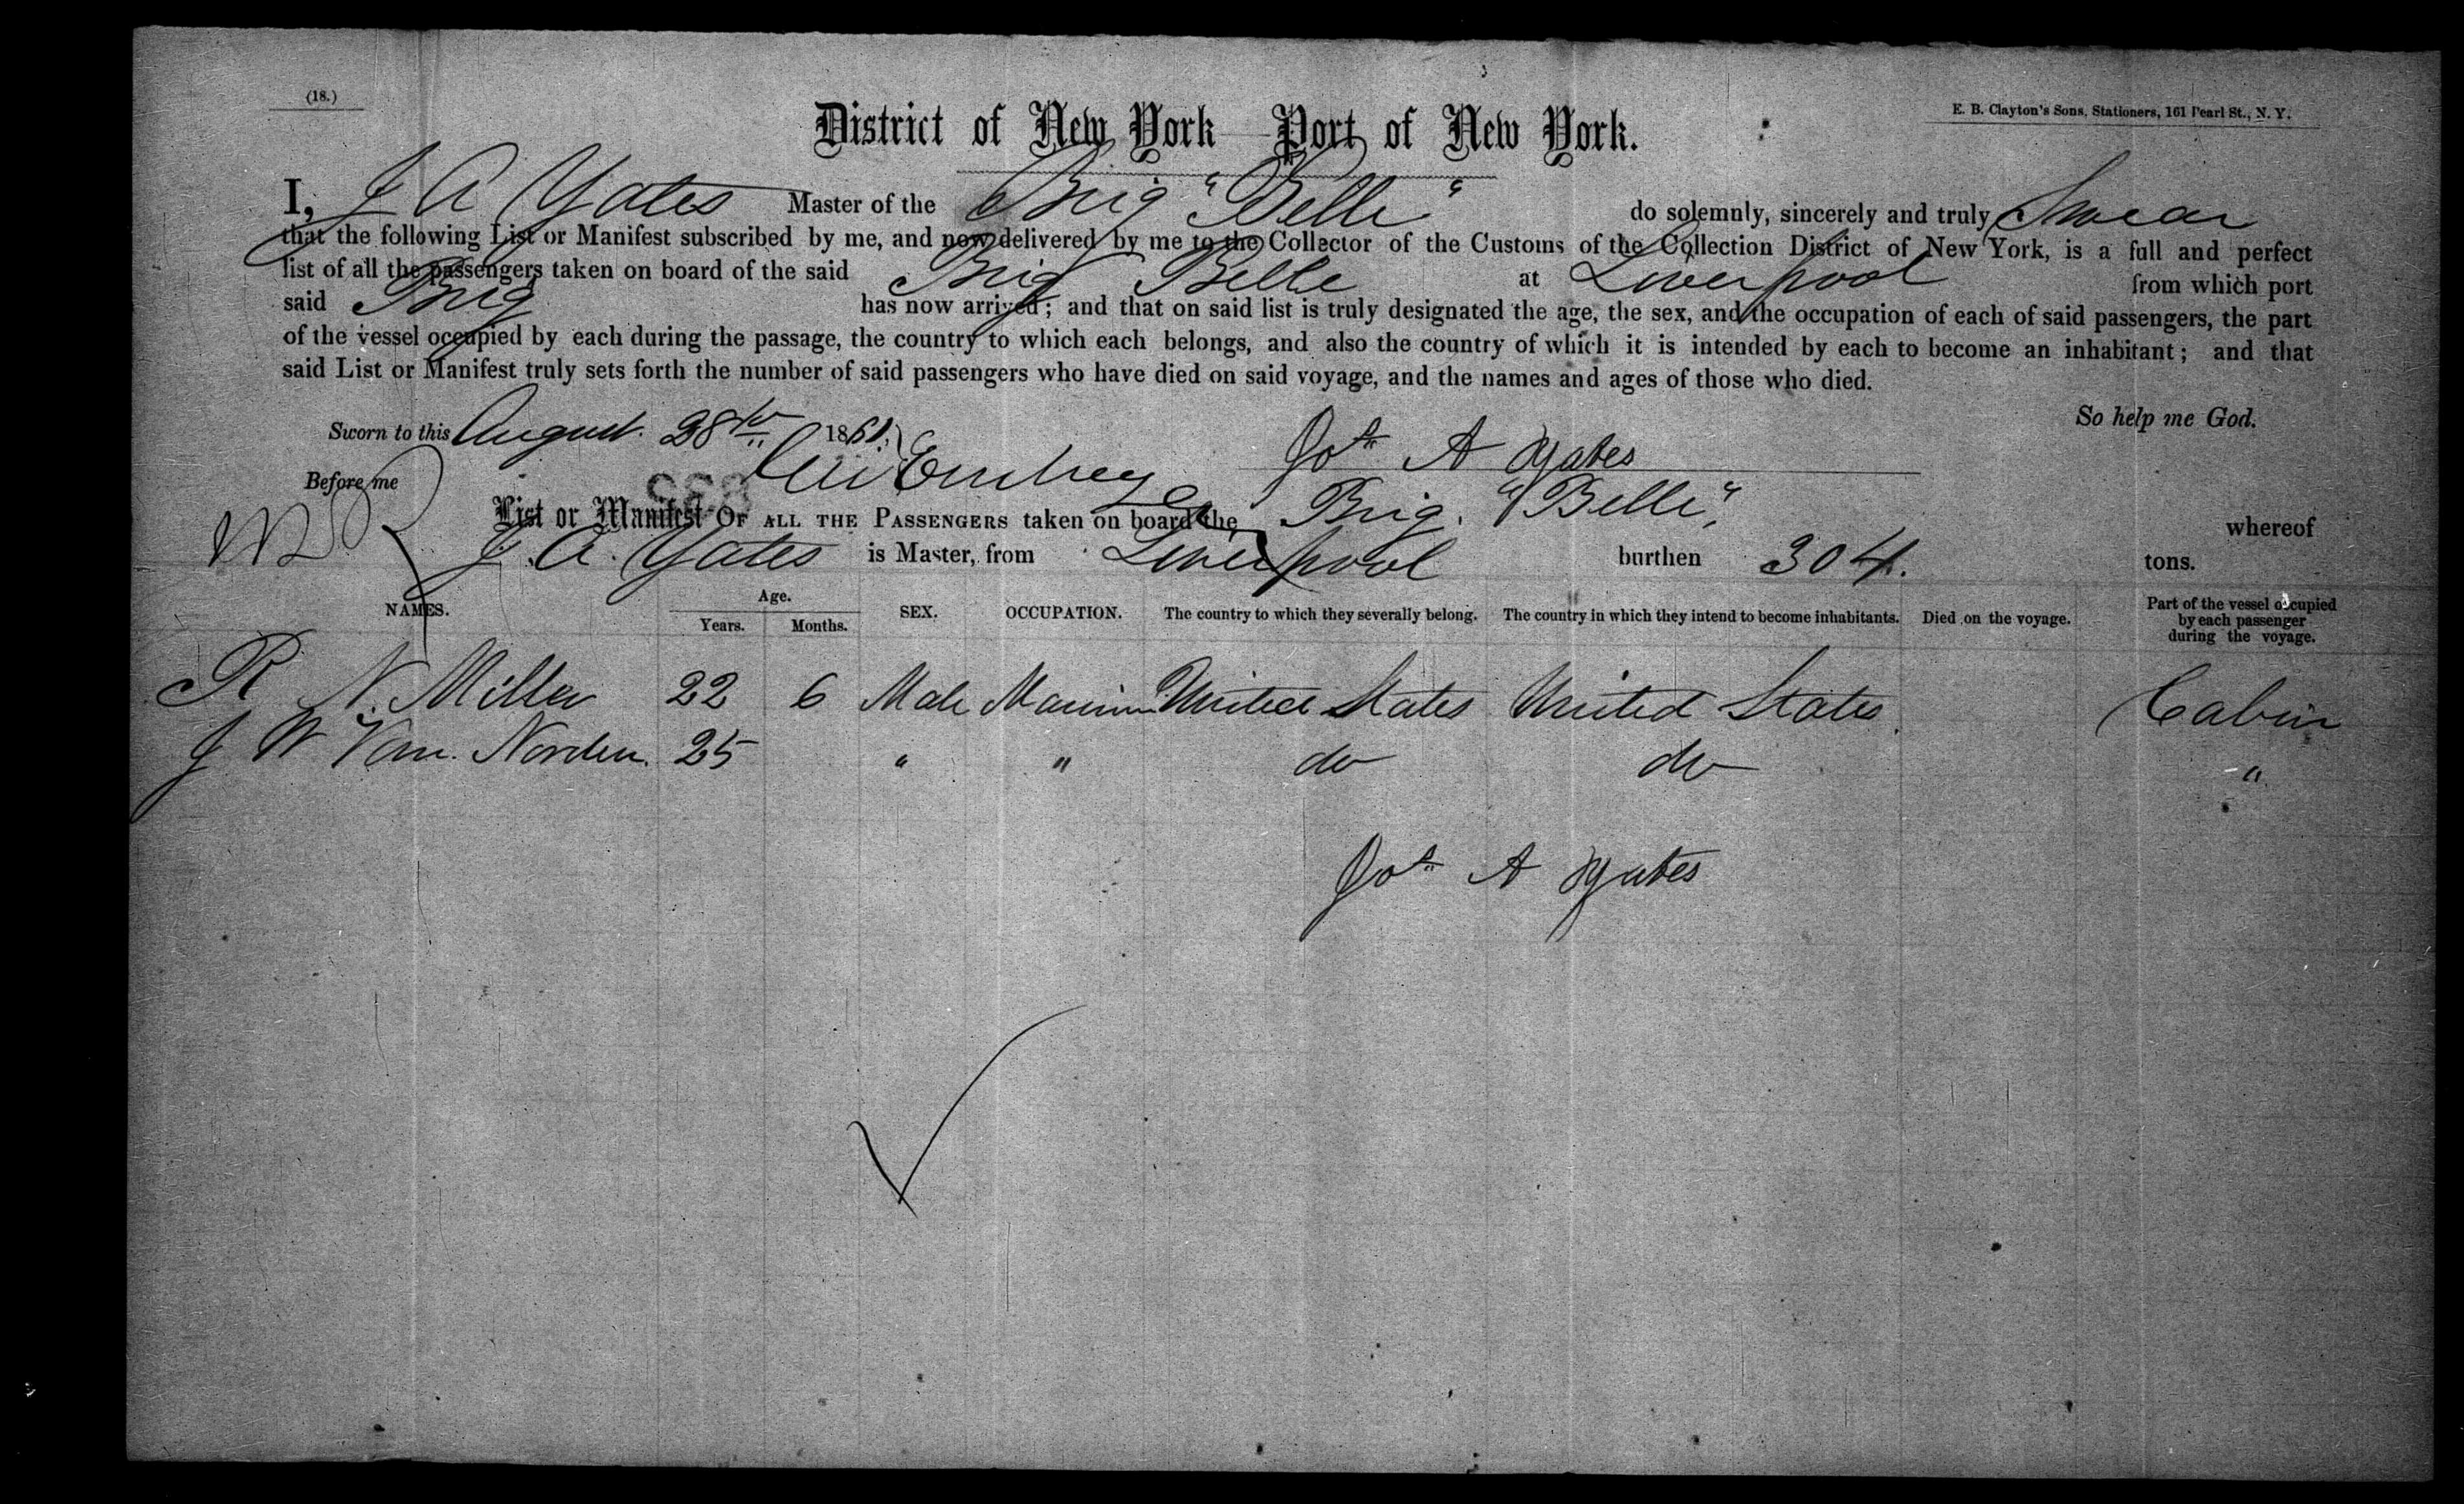 (18.)
E. B. Clayton's Sons, Stationers, 161 Pearl St., N. Y.
District of New York—Port of New York.
I, J A Yates Master of the Brig "Belle" do solemnly, sincerely and truly Swear
that the following List or Manifest subscribed by me, and now delivered by me to the Collector of the Customs of the Collection District of New York, is a full and perfect
list of all the passengers taken on board of the said Brig Belle at Liverpool from which port
said Brig has now arrived; and that on said list is truly designated the age, the sex, and the occupation of each of said passengers, the part
of the vessel occupied by each during the passage, the country to which each belongs, and also the country of which it is intended by each to become an inhabitant; and that
said List or Manifest truly sets forth the number of said passengers who have died on said voyage, and the names and ages of those who died.
So help me God.
Sworn to this August 28th 1861.
Jos A Yates
Before me
List or Manifest OF ALL THE PASSENGERS taken on board the Brig. "Belle", whereof
J. A. Yates is Master, from Liverpool burthen 304. tons.
NAMES. Age. Years. Months. SEX. OCCUPATION. The country to which they severally belong. The country in which they intend to become inhabitants. Died on the voyage. Part of the vessel occupied by each passenger during the voyage.
R N. Miller 22 6 Male Mariner United States United States Cabin
J W Van. Norden. 25 " " do do "
Jos A Yates